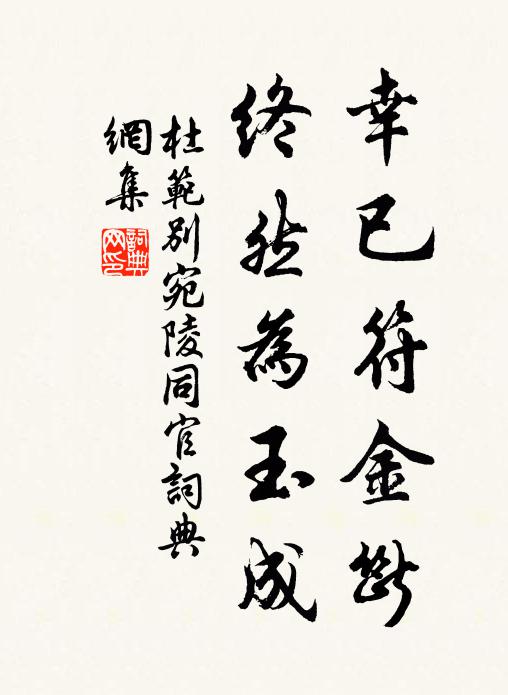 幸已符金斷
終然為玉成
杜範別宛陵同官詞典
網集
詞典
网印